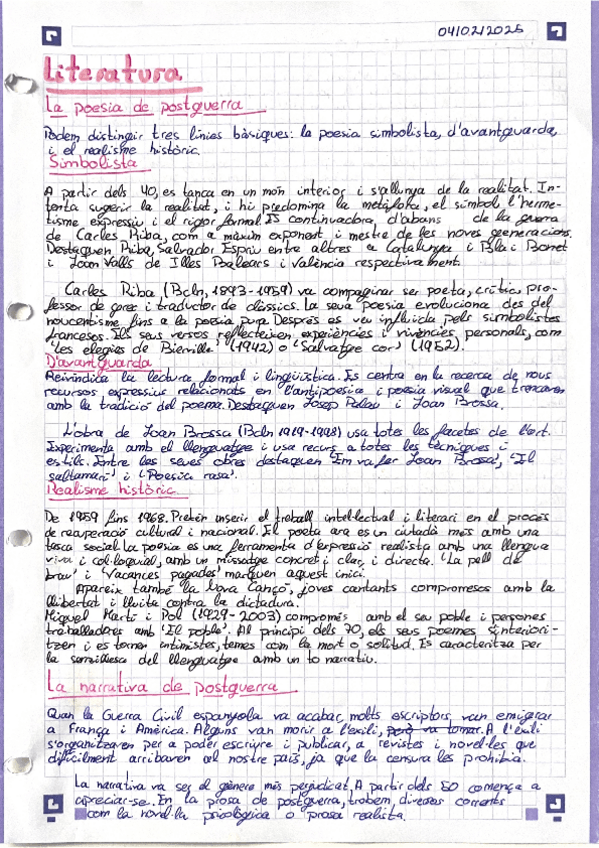 04/02/2025
Literatura
La poesia de postguerra
Podem distingir tres línies bàsiques: la poesia simbolista, d'avantguarda,
i el realisme històric.
Simbolista
A partir dels 40, es tanca en un món interior i s'allunya de la realitat. In-
tenta suggerir la realitat, i hi predomina la metàfora, el símbol, l'herme-
tisme expressiu i el rigor formal. ES continuadora, d'abans de la guerra
de Carles Riba, com a màxim exponent i mestre de les noves generacions.
Destaquen Riba, Salvador Espriu entre altres a Catalunya i Blai Bonet
i Joan Valls de Illes Balears i València respectivament.
Carles Riba (Bcln, 1893-1959) va compaginar ser poeta, crític, pro-
fessor de grec i traductor de clàssics. La seva poesia evoluciona des del
noucentisme fins a la poesia pura. Després es veu influïda pels simbolistes
francesos. Els seus versos reflecteixen experiències i vivències personals, com
'les elegies de Bierville' (1942) o 'Salvatge cor' (1952).
D'avantguarda
Reivindica la lectura formal i lingüística. Es centra en la recerca de nous
recursos expressius relacionats en l'antipoesia i poesia visual que trencaven
amb la tradició del poema. Destaquen Josep Palau i Joan Brossa.
L'obra de Joan Brossa (Bcln 1919-1998) usa totes les facetes de l'art.
Experimenta amb el llenguatge i usa recurs a totes les tècniques i
estils. Entre les seves obres destaquen 'Em va fer Joan Brossa', 'El
saltamartí' i 'Poesia rasa'.
Realisme històric
De 1959 fins 1968. Pretén inserir el treball intel·lectual i literari en el procés
de recuperació cultural i nacional. El poeta ara es un ciutadà més amb una
tasca social. La poesia es una ferramenta d'expressió realista amb una llengua
viva i col·loquial, amb un missatge concret i clar, i directa. 'La pell de
brau' i 'Vacances pagades' marquen aquest inici.
Apareix també la Nova Cançó, joves cantants compromesos amb la
llibertat i lluita contra la dictadura.
Miquel Martí i Pol (1929-2003) compromés amb el seu poble i persones
treballadores amb 'El poble'. Al principi dels 70, els seus poemes s'interiori-
tzen i es tornen intimistes, temes com la mort o solitud. Es caracteritza per
la senzillesa del llenguatge amb un to narratiu.
La narrativa de postguerra
Quan la Guerra Civil espanyola va acabar, molts escriptors van emigrar
a França i Amèrica. Alguns van morir a l'exili, però va tornar. A l'exili
s'organitzaven per a poder escriure i publicar, a revistes i novel·les que
difícilment arribaven al nostre país, ja que la censura les prohibia.
La narrativa va ser el gènere més perjudicat. A partir dels 50 comença a
apreciar-se. En la prosa de postguerra, trobem, diverses corrents
com la novel·la psicològica o prosa realista.